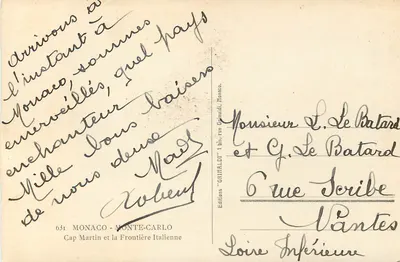 arrivons à
l'instant à
Monaco, sommes
émerveillés, quel pays
enchanteur
Mille bons baisers
de nous deux
Mado
Robert
631 MONACO - MONTE-CARLO
Cap Martin et la Frontière Italienne
Editions "GRIMALDI"
Monsieur L. Le Batard
et G. Le Batard
6 rue Scribe
Nantes
Loire Inférieure